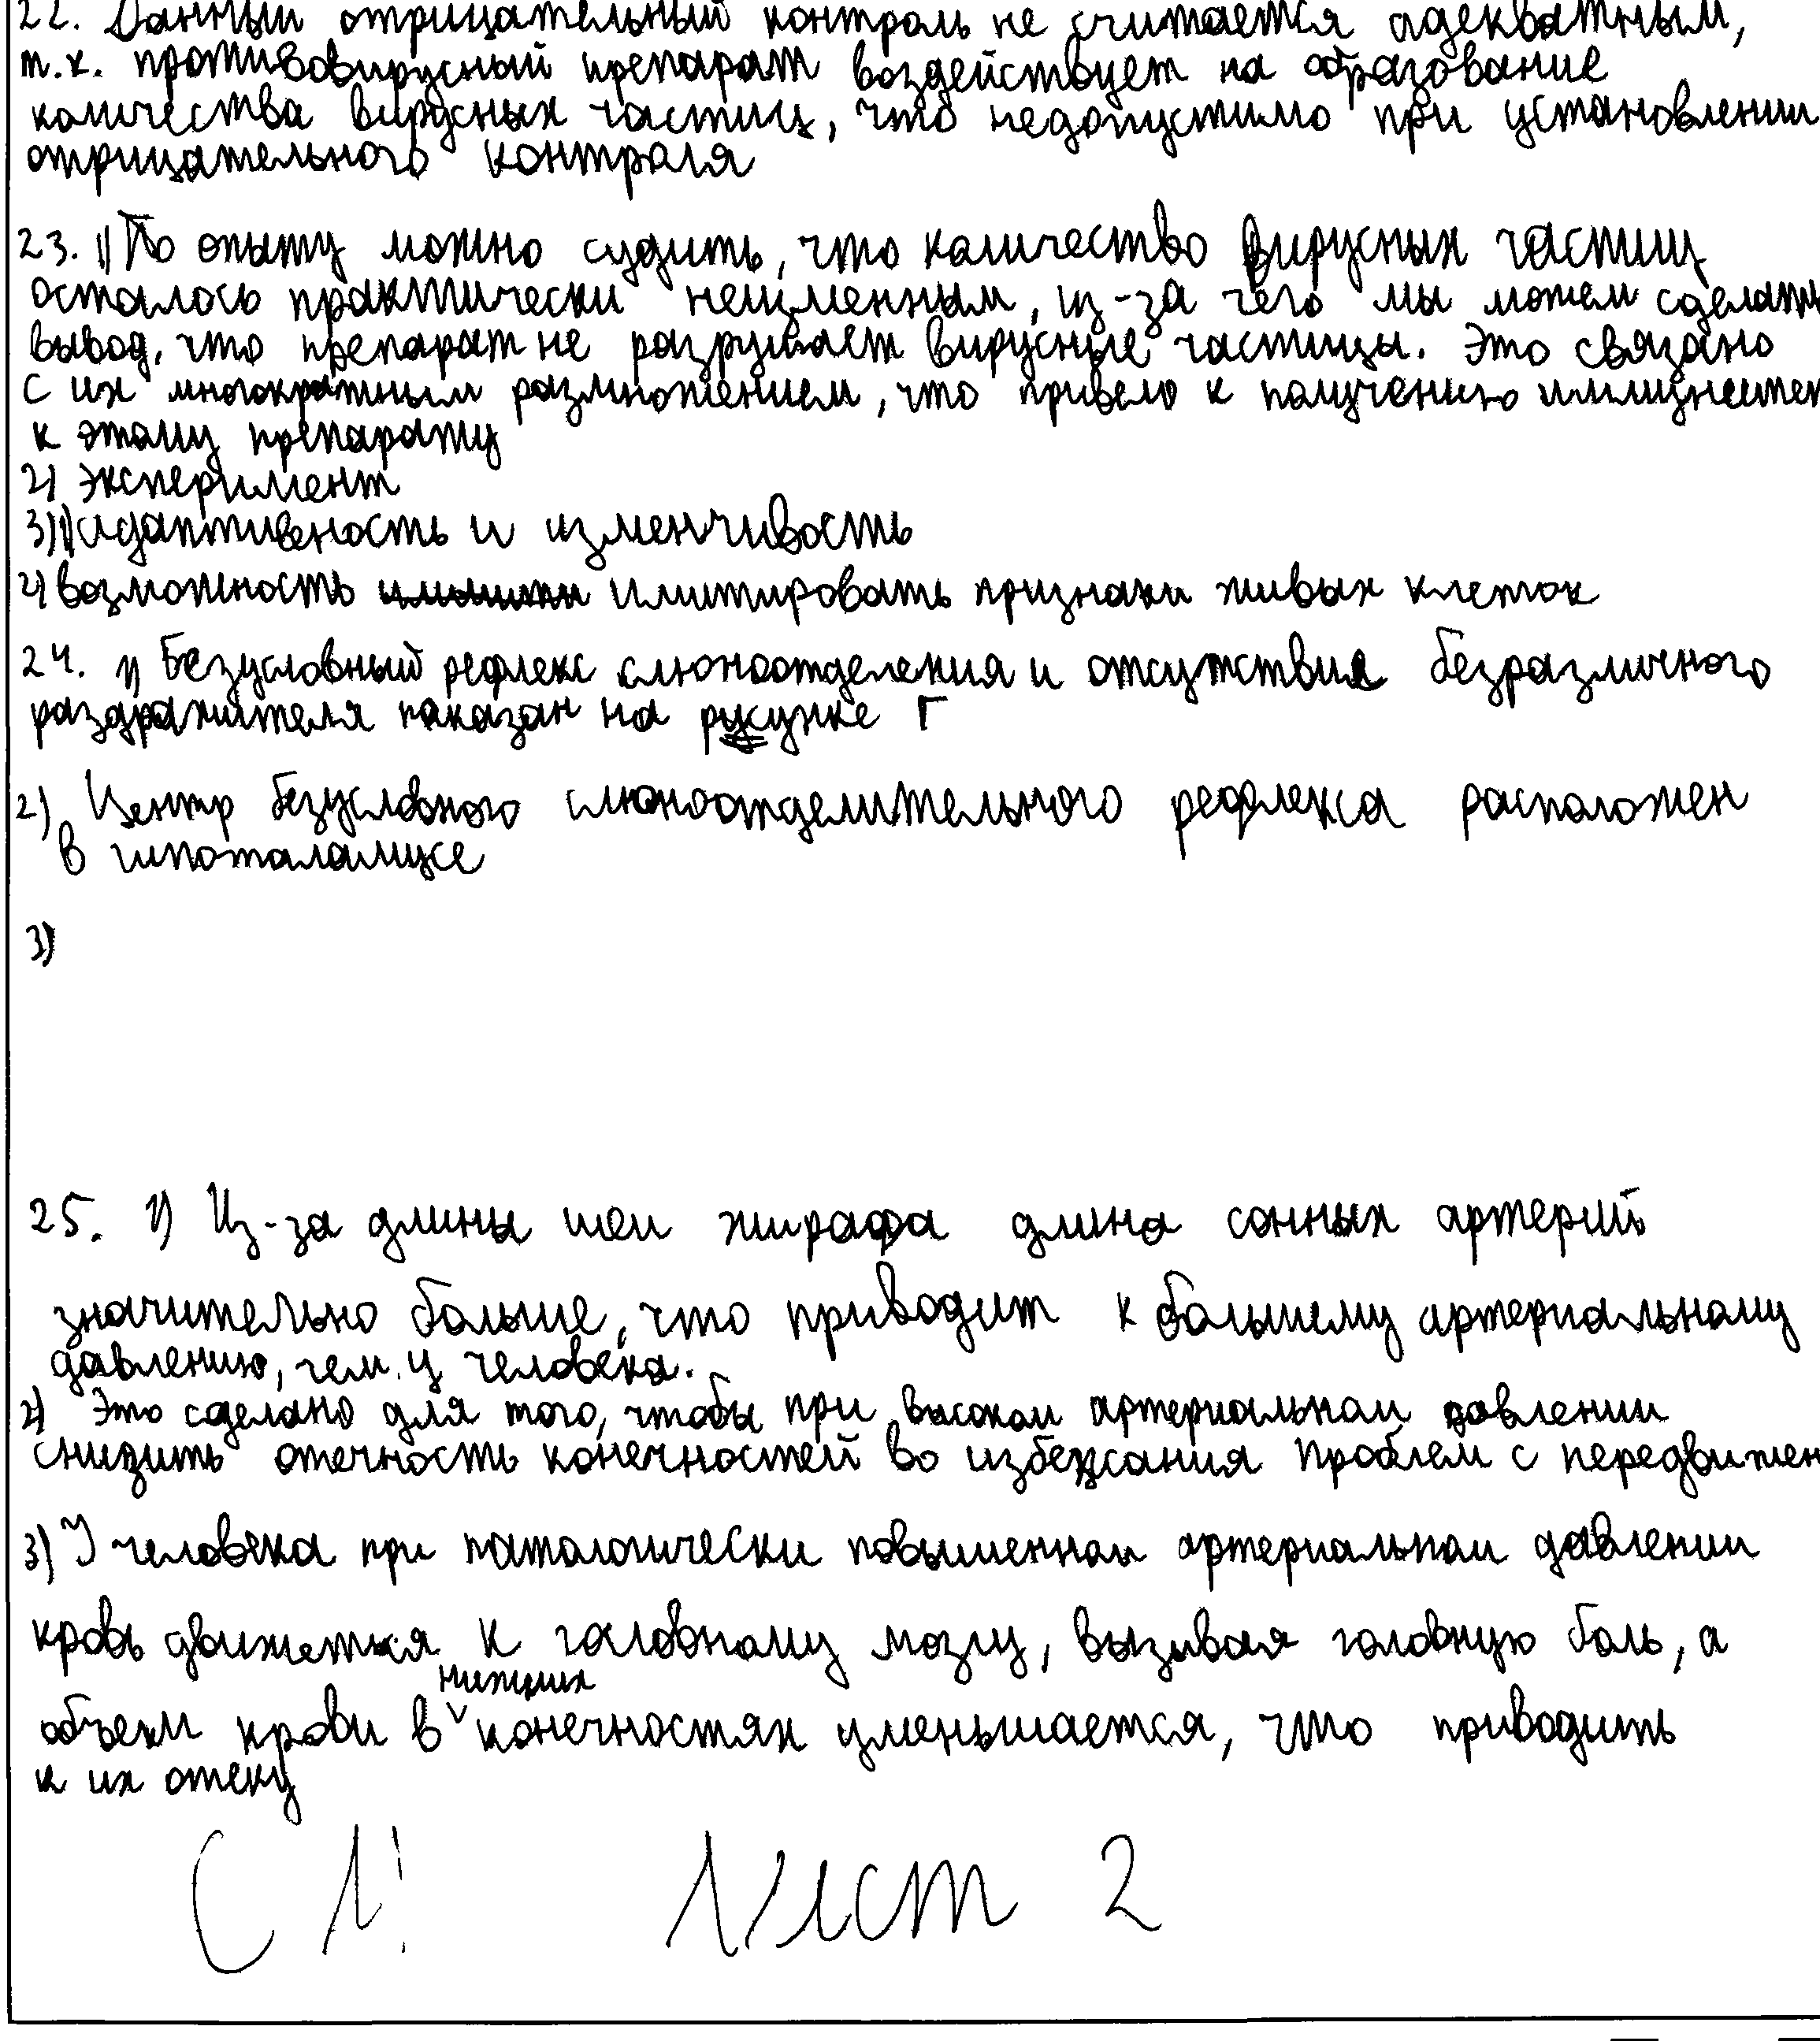 22. Данный отрицательный контроль не считается адекватным,
т.к. противовирусный препарат воздействует на образование
количества вирусных частиц, что недопустимо при установлении
отрицательного контроля
23. 1) По опыту можно судить, что количество вирусных частиц
осталось практически неизменным, из-за чего мы можем сделать
вывод, что препарат не разрушает вирусные частицы. Это связано
с их многократным размножением, что привело к получению
к этому препарату
2) Эксперимент
3) 1) адаптивность и изменчивость
2) возможность имитировать признаки живых клеток
24. 1) Безусловный рефлекс слюноотделения и отсутствие безразличного
раздражителя показан на рисунке Г
2) Центр безусловного слюноотделительного рефлекса расположен
в гипоталамусе
3)
25. 1) Из-за длины шеи жирафа длина сонных артерий
значительно больше, что приводит к большему артериальному
давлению, чем у человека.
2) Это сделано для того, чтобы при высоком артериальном давлении
снизить отечность конечностей во избежания проблем с передвижен
3) У человека при патологически повышенном артериальном давлении
кровь движется к головному мозгу, вызывая головную боль, а
объем крови в нижних конечностях уменьшается, что приводить
к их отеку
Лист 2